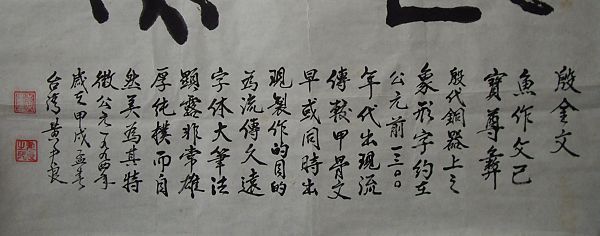 殷金文
魚作父已
寶尊彝
殷代銅器上之
象形字約在
公元前一三〇〇
年代出現流
傳較甲骨文
早或同時出
現製作的目的
為流傳久遠
字体大筆法
顯露非常雄
厚純樸而自
然美為其特
徵公元一九九四年
歲次甲戌孟春
台灣黃良